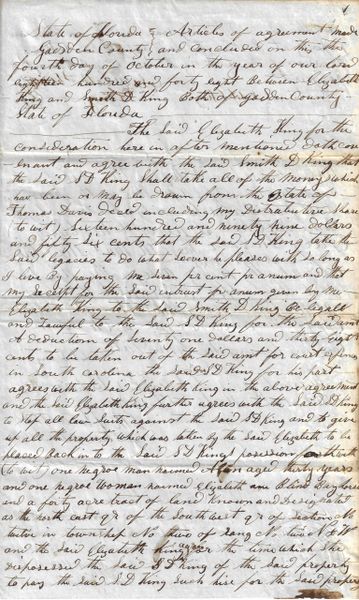 State of Florida } Articles of agreement made
Gadsden County } and concluded on this the
fourth day of October in the year of our Lord
eighteen hundred and forty eight Between Elizabeth
King and Smith D King Both of Gadsden County
State of Florida
The Said Elizabeth King for the
consideration here in after mentioned doth cove
nant and agree with the Said Smith D King that
the said S D King Shall take all of the money which
has been or may be drawn from the Estate of
Thomas Davis decd including my distributive Share
(to wit) Sixteen hundred and ninety nine dollars
and fifty Six cents that the Said S D King take the
Said legaces to do what Sever he pleases with so long as
I live by paying me seven per cent per anum and that
my Receipt for the Said intrust per anum given by me
Elizabeth King to the Said Smith D King Be legall
and lawful to the Said S D King for the Same
A deduction of Seventy one dollars and thirty eight
cents to be taken out of the Said amt for court expens
in South carolina the Said S D King for his part
agrees with the Said Elizabeth King in the above agreement
and the Said Elizabeth King further agrees with the Said S D King
to Stop all law Suits against the Said S D King and to give
up all the property which was taken by the Said Elizabeth to be
placed Back into the Said S D Kings possession
to wit one negroe man naimed aged thirty years
and one negroe woman naimed Elizabeth
and a forty acre tract of land Known and Designated
as the north east qr of the South west qr of Section No
twelve in township No two of Rang No two N & W
and the Said Elizabeth King agrees the time which She
dispossesed the Said S D King of the Said property
to pay the Said S D King Such hire for the Said property